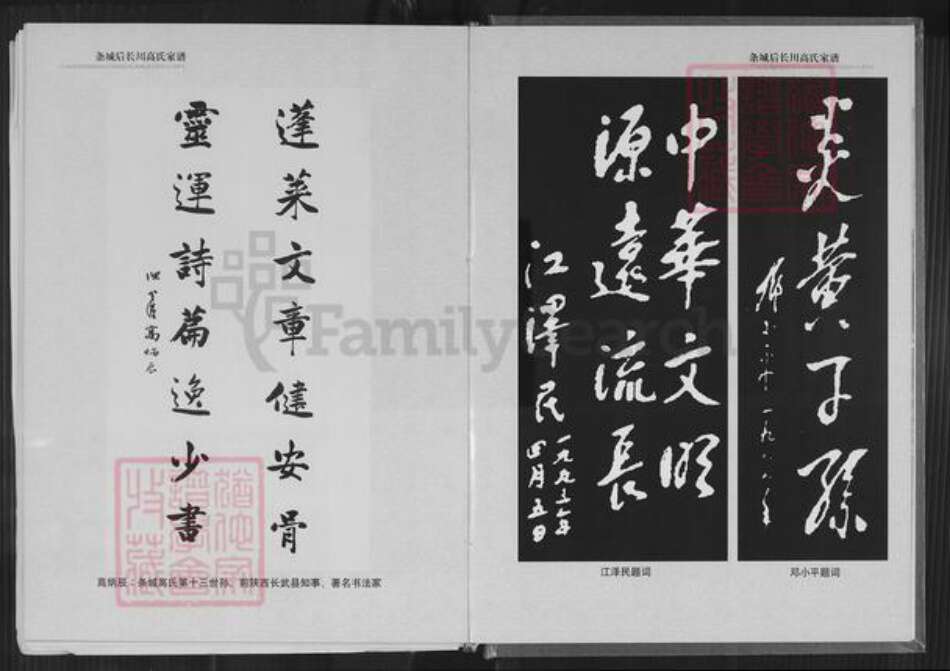 条城后长川高氏家谱
蓬莱文章健安骨
靈運詩篇逸少書
高炳辰：条城高氏第十三世孙、前陕西长武县知事、著名书法家
条城后长川高氏家谱
炎黄子孫
邓小平题词
中華文明
源遠流長
江澤民
一九九三年
四月五日
江泽民题词
FamilySearch